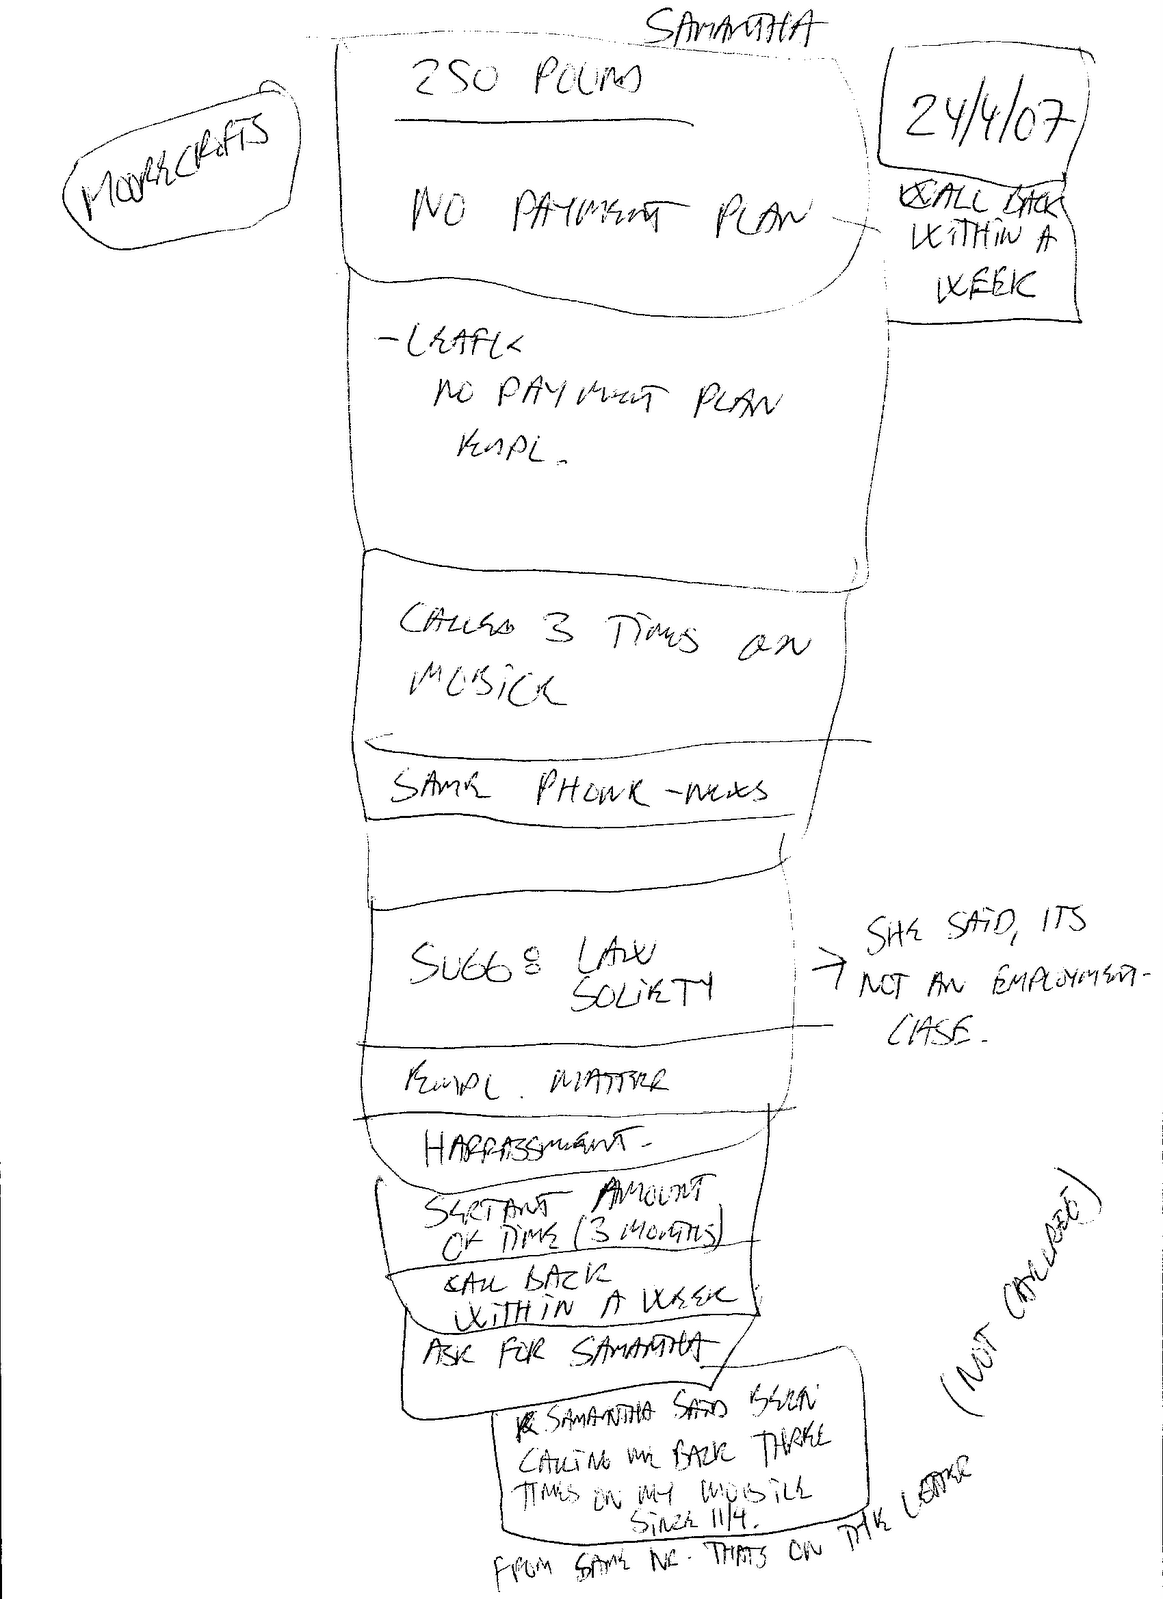 SAMANTHA
250 POUND
MOORECROFTS
24/4/07
NO PAYMENT PLAN
CALL BACK
WITHIN A
WEEK
-
NO PAYMENT PLAN
EMPL.
CALLED 3 TIMES ON
MOBILE
SAME PHONE -
SUGG: LAW
SOCIETY
→ SHE SAID, ITS
NOT AN EMPLOYMENT-
CASE.
EMPL. MATTER
HARRASSMENT-
SERTANT AMOUNT
OF TIME (3 MONTHS)
CALL BACK
WITHIN A WEEK
ASK FOR SAMANTHA
SAMANTHA SAID BEEN
CALLING ME BACK THREE
TIMES ON MY MOBILE
SINCE 11/4.
FROM SAME NR. THATS ON THE LETTER
(NOT CALLED)